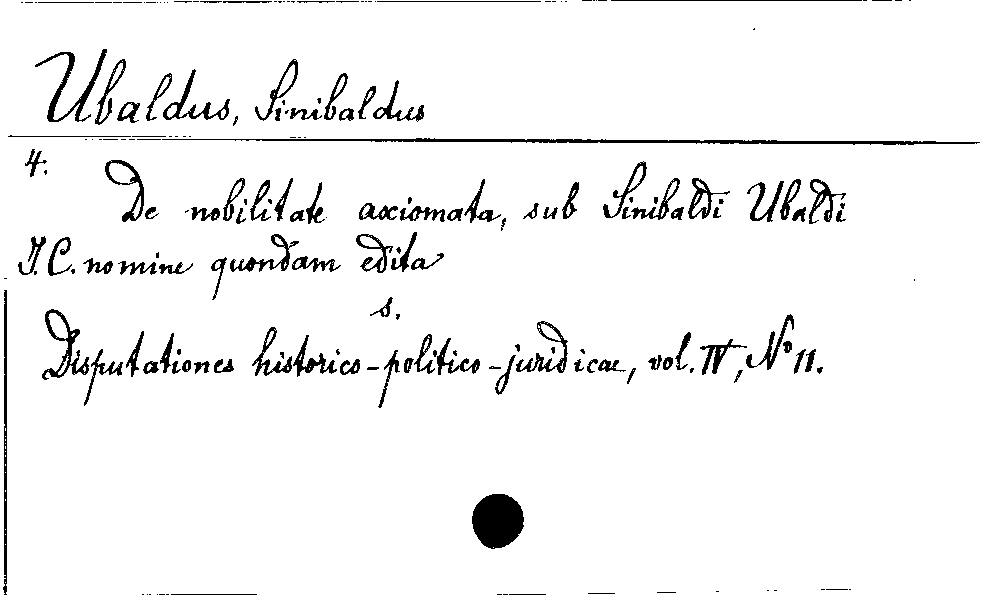 Ubaldus, Sinibaldus
4.
De nobilitate axiomata, sub Sinibaldi Ubaldi
J.C. nomine quondam edita
s.
Disputationes historico-politico-juridicae, vol. IV, No 11.